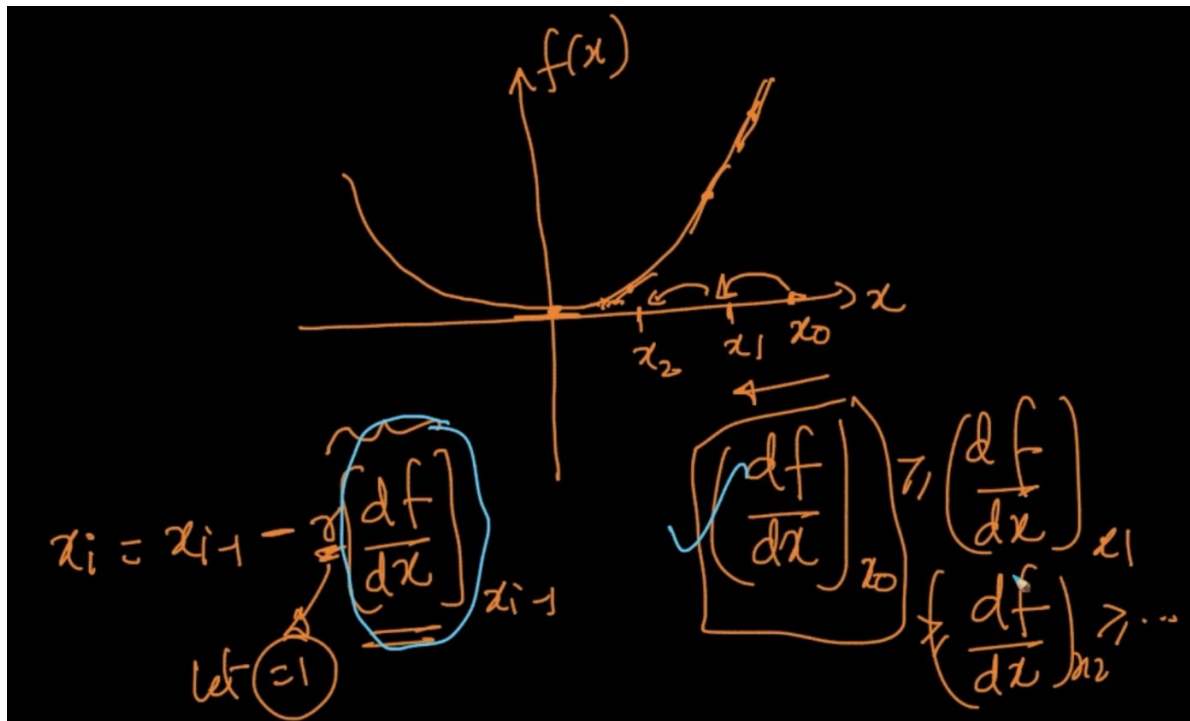 f(x)
x
x₂ x₁ x₀
xᵢ = xᵢ₋₁ - r [df/dx]ₓᵢ₋₁
let =1
(df/dx)ₓ₀ ≥ (df/dx)ₓ₁
≥ (df/dx)ₓ₂ ≥ ...